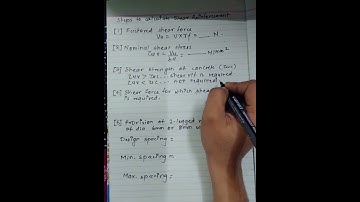 Steps to calculate Shear Reinforcement
[1] Factored shear force
Vu = V×γf = ___ N.
[2] Nominal shear stress
τuv = Vu/bd = ___ N/mm²
[3] Shear strength of concrete (τuc)
τuv > τuc... shear r/f is required
τuv < τuc... not required
[4] Shear force for which shear
is required.
[5] Provision of 2-legged
of dia 6mm or 8mm
Design spacing =
Min. spacing =
Max. spacing =